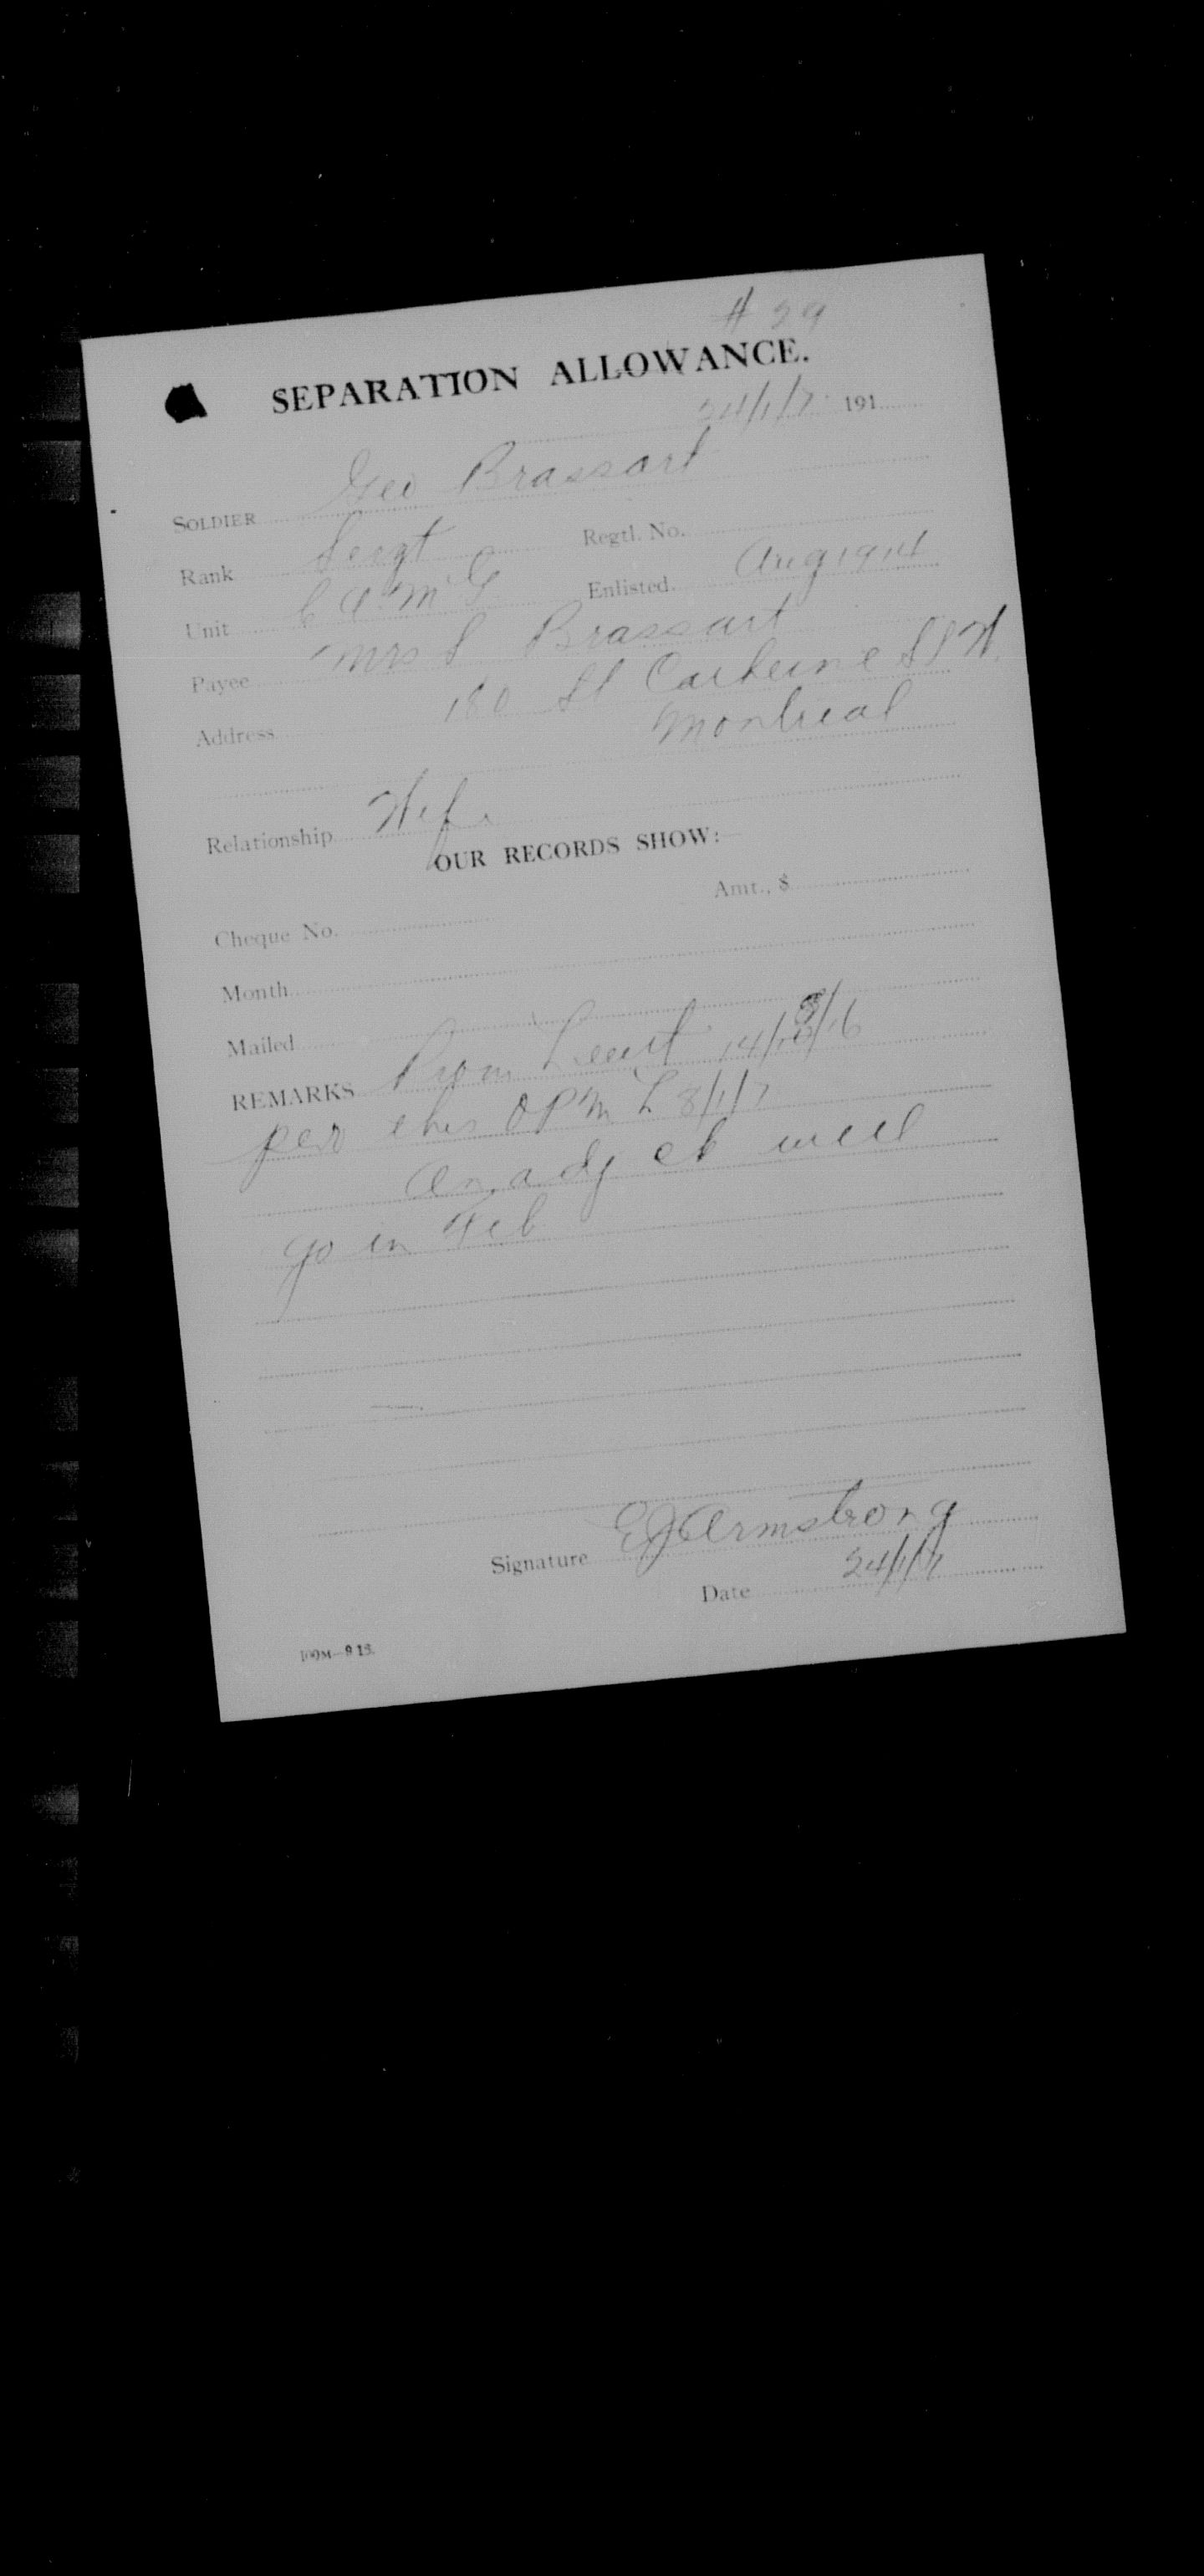 # 29
SEPARATION ALLOWANCE.
24/1/7 191
SOLDIER Geo Brassart
Rank Sergt Regtl. No.
Unit C A M G Enlisted. Aug 1914
Payee Mrs S Brassart
Address 180 St Catherine St W.
Montreal
Relationship Wife
OUR RECORDS SHOW:
Amt., $
Cheque No.
Month
Mailed
REMARKS Prom Lieut 14/ /16
per O P M L 8/1/7
An adj ck will
go in Feb
Signature EJ Armstrong
Date 24/1/7
100M—9 15.